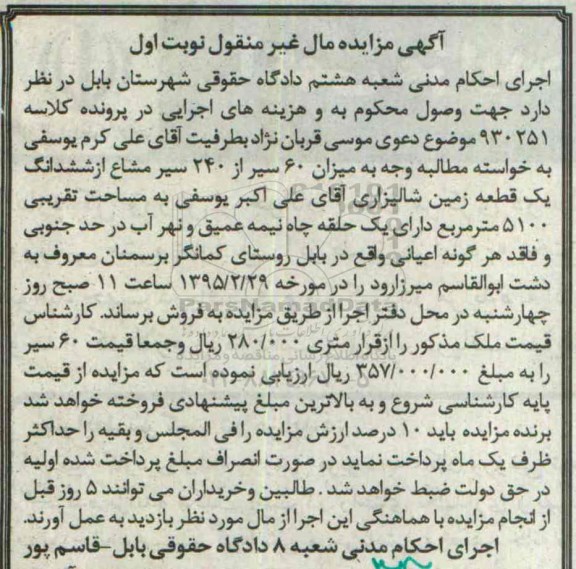 آگهی مزایده مال غیر منقول نوبت اول
اجرای احکام مدنی شعبه هشتم دادگاه حقوقی شهرستان بابل در نظر
دارد جهت وصول محکوم به و هزینه های اجرایی در پرونده کلاسه
۹۳۰۲۵۱ موضوع دعوی موسی قربان نژاد بطرفیت آقای علی کرم یوسفی
به خواسته مطالبه وجه به میزان ۶۰ سیر از ۲۴۰ سیر مشاع ازششدانگ
یک قطعه زمین شالیزاری آقای علی اکبر یوسفی به مساحت تقریبی
۵۱۰۰ مترمربع دارای یک حلقه چاه نیمه عمیق و نهر آب در حد جنوبی
و فاقد هر گونه اعیانی واقع در بابل روستای کمانگر برسمنان معروف به
دشت ابوالقاسم میرزارود را در مورخه ۱۳۹۵/۲/۲۹ ساعت ۱۱ صبح روز
چهارشنبه در محل دفتر اجرا از طریق مزایده به فروش برساند. کارشناس
قیمت ملک مذکور را ازقرار متری ۲۸۰/۰۰۰ ریال وجمعا قیمت ۶۰ سیر
را به مبلغ ۳۵۷/۰۰۰/۰۰۰ ریال ارزیابی نموده است که مزایده از قیمت
پایه کارشناسی شروع و به بالاترین مبلغ پیشنهادی فروخته خواهد شد
برنده مزایده باید ۱۰ درصد ارزش مزایده را فی المجلس و بقیه را حداکثر
ظرف یک ماه پرداخت نماید در صورت انصراف مبلغ پرداخت شده اولیه
در حق دولت ضبط خواهد شد . طالبین وخریداران می توانند ۵ روز قبل
از انجام مزایده با هماهنگی این اجرا از مال مورد نظر بازدید به عمل آورند.
اجرای احکام مدنی شعبه ۸ دادگاه حقوقی بابل-قاسم پور
ParsNamadData